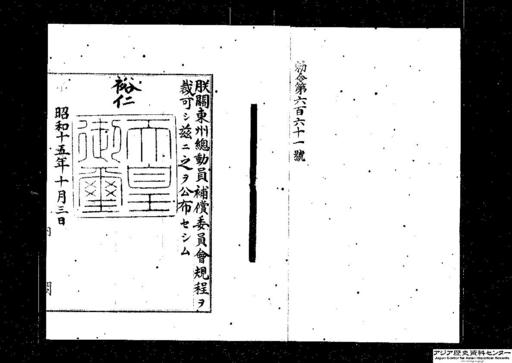 勅令第六百六十一號
朕關東州總動員補償委員會規程ヲ
裁可シ玆ニ之ヲ公布セシム
裕仁
天皇御璽
昭和十五年十月三日
内 閣
アジア歴史資料センター
Japan Center for Asian Historical Records